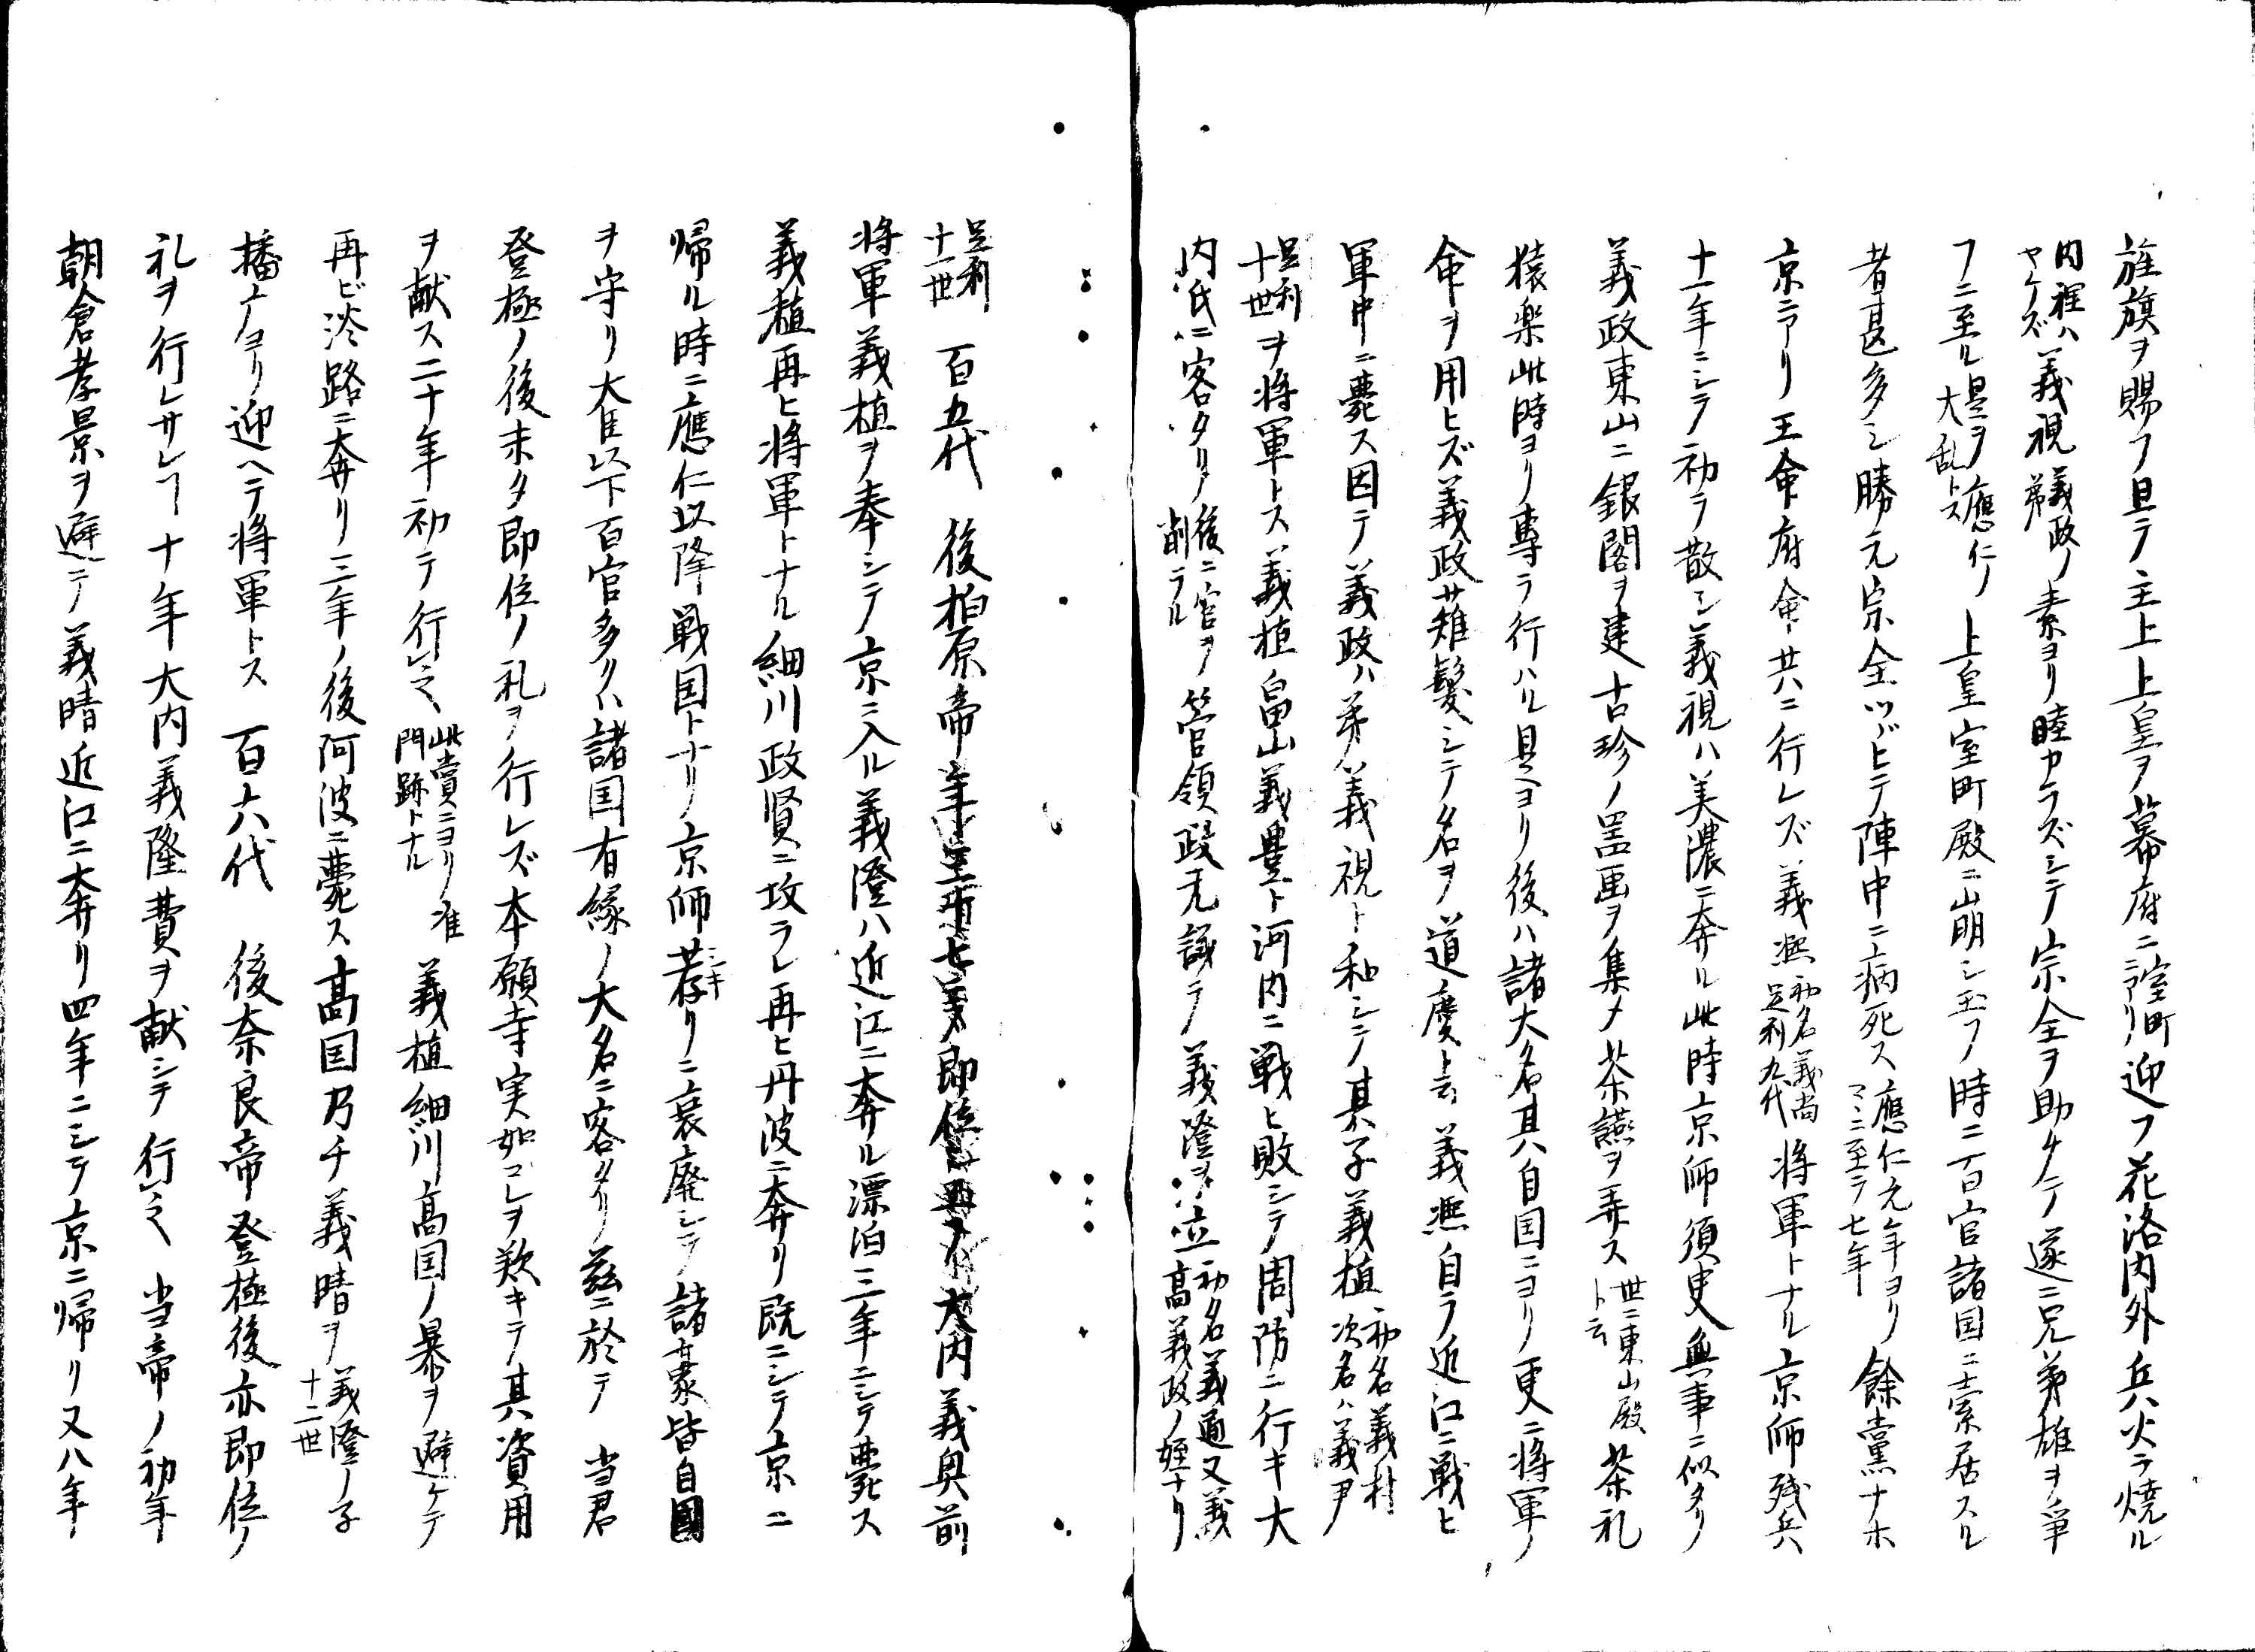 旌旗ヲ賜フ且テ主上上皇ヲ幕府ニ室町ニアリ迎フ花洛内外兵火ラ焼ル
内裡ハヤケズ義視義政ノ弟素ヨリ睦カラズシテ宗全ヲ助ケテ遂ニ兄弟雄ヲ争
フニ至ル是ヲ應仁ノ大乱トス上皇室町殿ニ崩シ玉フノ時ニ百官諸国ニ索居スル
者甚多シ勝元宗全ツヾヒテ陣中ニ病死ス應仁元年ヨリマニ至テ七年餘黨ナホ
京ニアリ王命府命共ニ行レズ義凞初名義尚足利九代将軍トナル京師残兵
十一年ニシテ初テ散シ義視ハ美濃ニ奔ル此時京師須臾無事ニ似タリ
義政東山ニ銀閣ヲ建古珍ノ器画ヲ集メ茶讌ヲ弄ス世ニ東山殿ト云茶礼
猿楽此時ヨリ專ラ行ハル是ヨリ後ハ諸大名其自国ニヨリ更ニ将軍ノ
命ヲ用ヒズ義政サ薙髪シテ名ヲ道慶ト云義凞自ラ近江ニ戦ヒ
軍中ニ薨ス因テ義政ハ弟義視ト和シテ其子義植初名義材次名ハ義尹
足利十世ヲ将軍トス義植畠山義豊ト河内ニ戦ヒ敗シテ周防ニ行キ大
内氏ニ客タリ後ニ官ヲ削ラル管領政元議テ義澄ヲ立初名義通又義高義政ノ姪ナリ
足利十一世　百五代　後柏原帝即位大内義興前
将軍義植ヲ奉シテ京ニ入ル義澄ハ近江ニ奔ル漂泊三年ニシテ薨ス
義植再ヒ将軍トナル細川政賢ニ攻ラレ再ヒ丹波ニ奔リ既ニシテ京ニ
帰ル時ニ應仁以降戦国トナリ京師荐リニ衰廃シテ諸家皆自國
ヲ守リ大隹以下百官多クハ諸国有縁ノ大名ニ客タリ茲ニ於テ　当君
登極ノ後未タ即位ノ礼ヲ行レズ本願寺実如コレヲ歎キテ其資用
ヲ献ス二十年初テ行之此賞ニヨリ准門跡トナル義植細川高国ノ暴ヲ避ケテ
再ビ淡路ニ奔リ三年ノ後阿波ニ薨ス高国乃チ義晴ヲ義澄ノ子十二世
播ナヨリ迎ヘテ将軍トス　百六代　後奈良帝登極後亦即位ノ
礼ヲ行レサレヿ十年大内義隆費ヲ献シテ行之　当帝ノ初年
朝倉孝景ヲ避テ義晴近江ニ奔リ四年ニシテ京ニ帰リ又八年